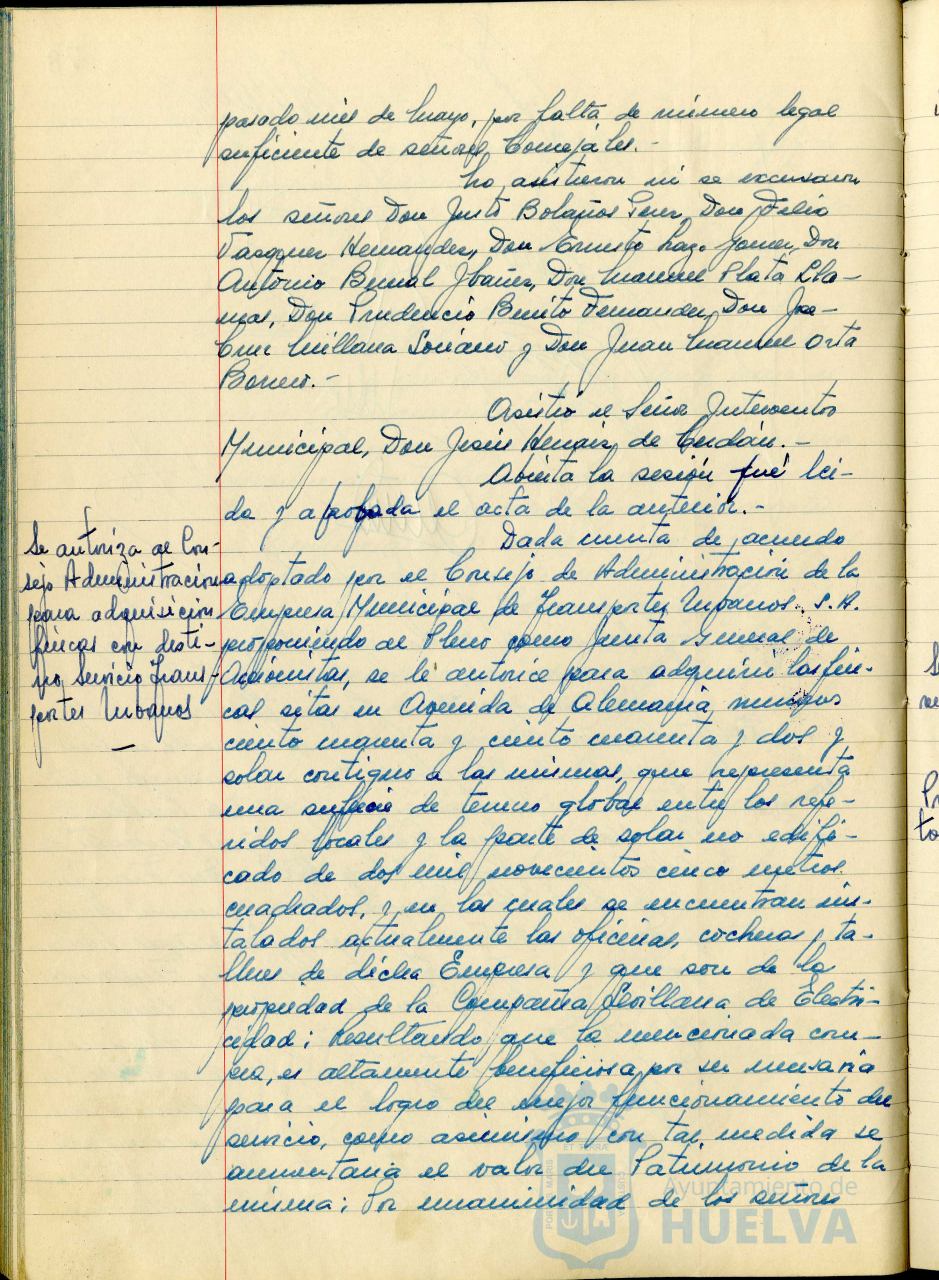 pasado mes de Mayo, por falta de número legal
suficiente de señores Concejales.-
No asistieron ni se excusaron
los señores Don Justo Bolaños Perez, Don Felix
Vazquez Hernandez, Don Ernesto Lazo Gomez, Don
Antonio Bernal Ibañez, Don Manuel Plata Lla-
nas, Don Prudencio Benito Fernandez, Don Jose
Cruz Millana Soriano y Don Juan Manuel Orta
Borrero.-
Asistió el Señor Interventor
Municipal, Don Jesús Henaiz de Cerdán.-
Abierta la sesión fué lei-
da y aprobada el acta de la anterior.-
Se autoriza al Con-
sejo Administracion
para adquisición
fincas con desti-
no Servicio Trans-
portes Urbanos
Dada cuenta de acuerdo
adoptado por el Consejo de Administración de la
Empresa Municipal de Transportes Urbanos. S.A.
proponiendo al Pleno como Junta General de
Accionistas, se le autorice para adquirir las fin-
cas sitas en Avenida de Alemania, números
ciento cuarenta y ciento cuarenta y dos y
solar contiguo a las mismas, que representa
una superficie de terreno global entre los refe-
ridos locales y la parte de solar no edifi-
cado de dos mil novecientos cinco metros
cuadrados, y en los cuales se encuentran ins-
talados actualmente las oficinas, cocheras y ta-
lleres de dicha Empresa y que son de la
propiedad de la Compañía Sevillana de Electri-
cidad; Resultando que la mencionada com-
pra, es altamente beneficiosa por ser necesaria
para el logro del mejor funcionamiento del
servicio, como asimismo con tal medida se
aumentaria el valor del Patrimonio de la
misma; Por unanimidad de los señores
Ayuntamiento de
HUELVA